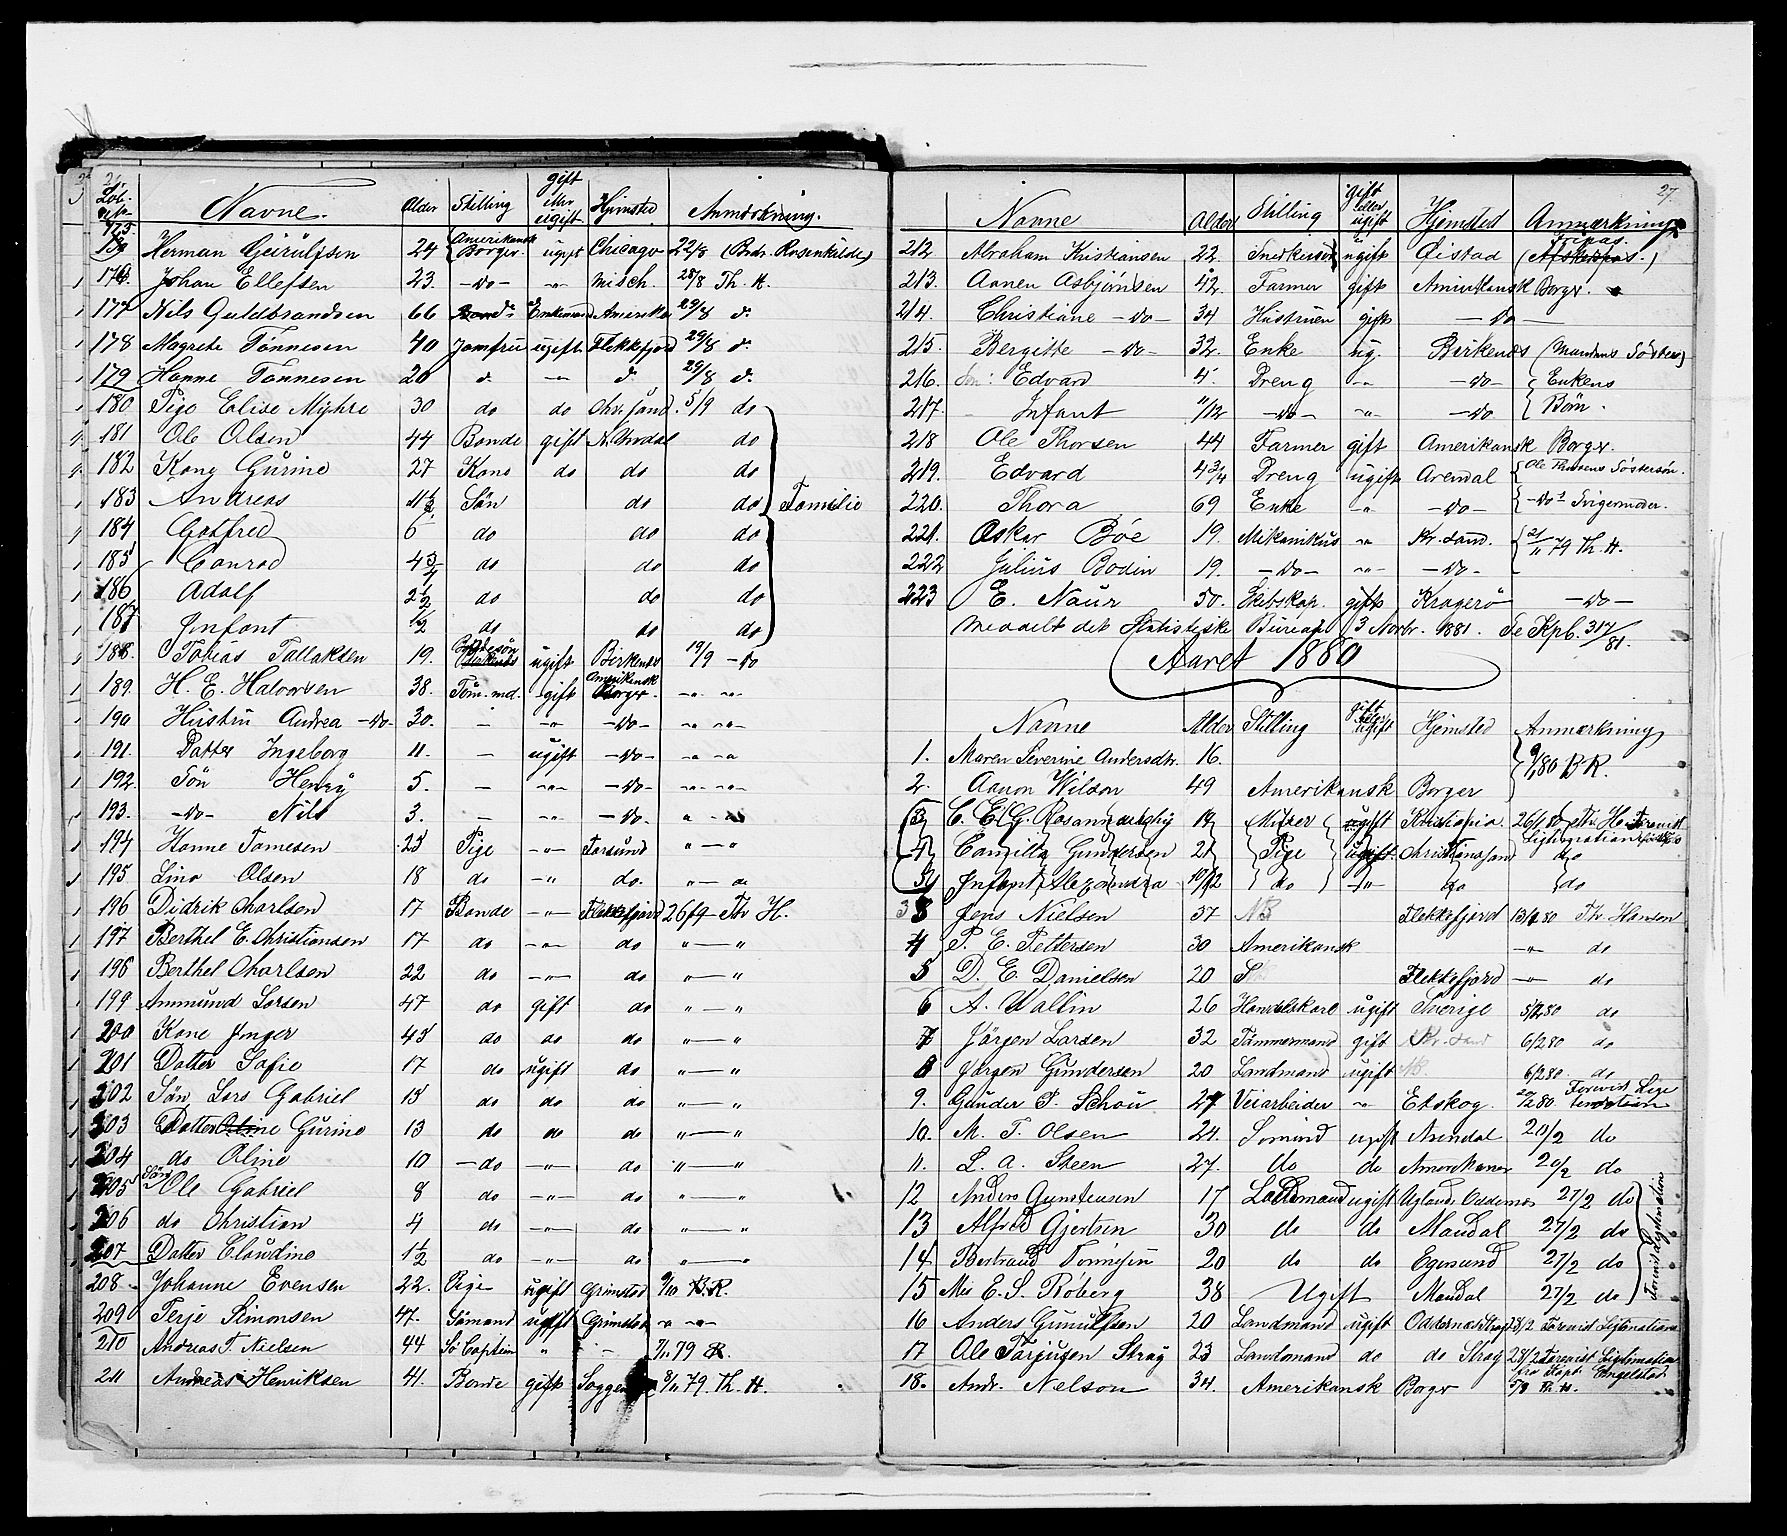 26.
Löb. Navne. Alder Stilling gift eller ugift Hjemsted Anmærkning.
175 Herman Geirulfsen 24 Amerikansk Borger ugift Chicago 22/8 (Brdr. Rosenkilde)
176 Johan Ellefsen 23. -do- -"- Misch. 28/8 Th. H.
177 Nils Guldbrandsen 66 Enkemand Amerika 29/8 d.
178 Magrete Tönnesen 40 Jomfru ugift Flekkefjord 29/8 d.
179 Hanne Tönnesen 20 d. -"- d. 29/8 d.
180 Pige Elise Myhre 30 do do Chr. sand. 5/9 do
181 Ole Olsen 44 Bonde gift do
182 Kone Gurine 27 Kone do do do
183 Andreas 11½ Sön do do Familie
184 Gotfred 6 do do do
185 Conrad 4¾ do do do
186 Adolf 2½ do do do
187 Infant ½ do do do
188 Tobias Tallaksen 19. ugift Birkenes 19/9 -do
189. H. E. Halvorsen 38. Töm. md. -gift Amerikansk Borger. -"- -"-
190 Hustru Andrea -do- 30. - -"- -do- -"- -"-
191. Datter Ingeborg 11. - ugift -do- -"- -"
192. Sön Henry 5. - -"- -do- -"- -"-
193. -do- Nils 3. - -"- -do- " - "
194 Hanne Tomesen 25 Pige -"- Farsund " - "
195. Line Olsen 18 do -" do. " - "
196 Didrik Charlsen 17 Bonde -"- Flekkefjord 26/9 Th H.
197 Berthel E. Christiansen 17 do -"- do " — "
198 Berthel Charlsen 22 do -"- do " — "
199 Ammund Larsen 47 do gift do " — "
200 Kone Inger 45 do do do " — "
201 Datter Sofie 17 do ugift do " — "
202 Sön Lars Gabriel 15 do do do " — "
203 Datter Gurine 13 do do do " — "
204 do Oline 10 -do -"- do " — "
205 Sön Ole Gabriel 8 do -"- do " — "
206 do Christian 4 do -"- do " — "
207 Datter Claudine 1½ do -"- do " — "
208 - Johanne Evensen 22. Pige ugift Grimstad 9/10 B.R.
209 Terje Simonsen 47. Sömand ugift Grimstad -"- -"-
210 Andreas T. Nielsen 44 Sö Captein " - 7/11 79 R.
211 Andreas Henriksen 41. Bonde gift 8/11 79. Th. H.
27.
Navne Alder Stilling gift eller ugift Hjemsted Anmærkning
212 Abraham Kristiansen 22. Snedkersvd ugift Öistad (Afskedspas.) Fripas.
213. Aanen Asbjörnsen 42. Farmer gift Amerikansk Borger.
214. Christiane -do- 34 Hustruen gift -do-
215. Bergitte -do- 32. Enke ug. Birkenes (Mandens Söster)
216. Sön: Edvard 4. Dreng -"- -do- Enkens
217. - Infant "/12 -do- -"- -do Börn.
218 Ole Thorsen 44 Farmer gift Amerikansk Borger.
219. Edvard 4¾ Dreng ugift Arendal Ole Thorsens Söstersön.
220. Thora 69 Enke -" -do- -do's Svigermoder.
221. Oskar Böe 19. Mikanikus -"- Kr. sand. 21/11 79 Th. H.
222 Julius Bodin 19. -do- -"- -do- -
223 E. Naur 50. Skibskap. gift Kragerö -do-
Meddelt det Statistiske Bureau 3 Novbr. 1881. Se Kpb. 317/81.
Aaret 1880
Navne Alder Stilling gift eller ugift Hjemsted Anmærkning
1. Maren Severine Andersdtr. 16. 9/1 80 B R.
2. Aanon Wilson 49 Amerikansk Borger
3 C. E. G. Rosann 19 ugift Kristiania. 26/1 80 Th. H. Forevist Ligitimation
4 Camilla Gundersen 21 Pige ugift Christianssand do
5 Infant Alexandra 10/12 do -"- do do
3 Jens Nielsen 37 NB Flekkefjord 13/1 80 Th. Hanson
4 P. E. Pettersen 30 Amerikansk -"- do
5 D. E. Danielsen 20 S. Flekkefjord -"- do
6 A. Wallin 26 Handelskarl ugift Sverige 5/2 80 do
7 Jörgen Larsen 32 Tömmermand gift Kr. sand 6/2 80 do
8 Jörgen Gundersen 20 Landmand ugift NB. 6/2 80. do
9. Gunder T. Schou 27 Veiarbeider -" Etskog. 20/2 80. Forevist Legitimation
10. M. T. Olsen 24. Sömand ugift Arendal 20/2 do
11. L. A. Steen 27. do do Amerikaner 20/2 do
12 Anders Gunstensen 17 Landmand ugift Ugland. Oddernes 27/2 do
13 Alfred Gjertsen 30 do do Mandal 27/2 do
14 Bertrand Tönnesen 20 do do Egersund 27/2 do
15 Mis E. S. Röberg 38 Ugift Mandal 27/2 do
Forevist Legitimation
16 Anders Gunulfsen 20 Landmand ugift Oddernes Strag 28/2 Forevist Ligitimation
17 Ole Tarjusen Strag 23 Landmand do do Strag 28/2 Forevist Ligitimation fra Kapt. Engelstad.
18. Andr. Nelson 34. Amerikansk Borger 5/3 Th. H.